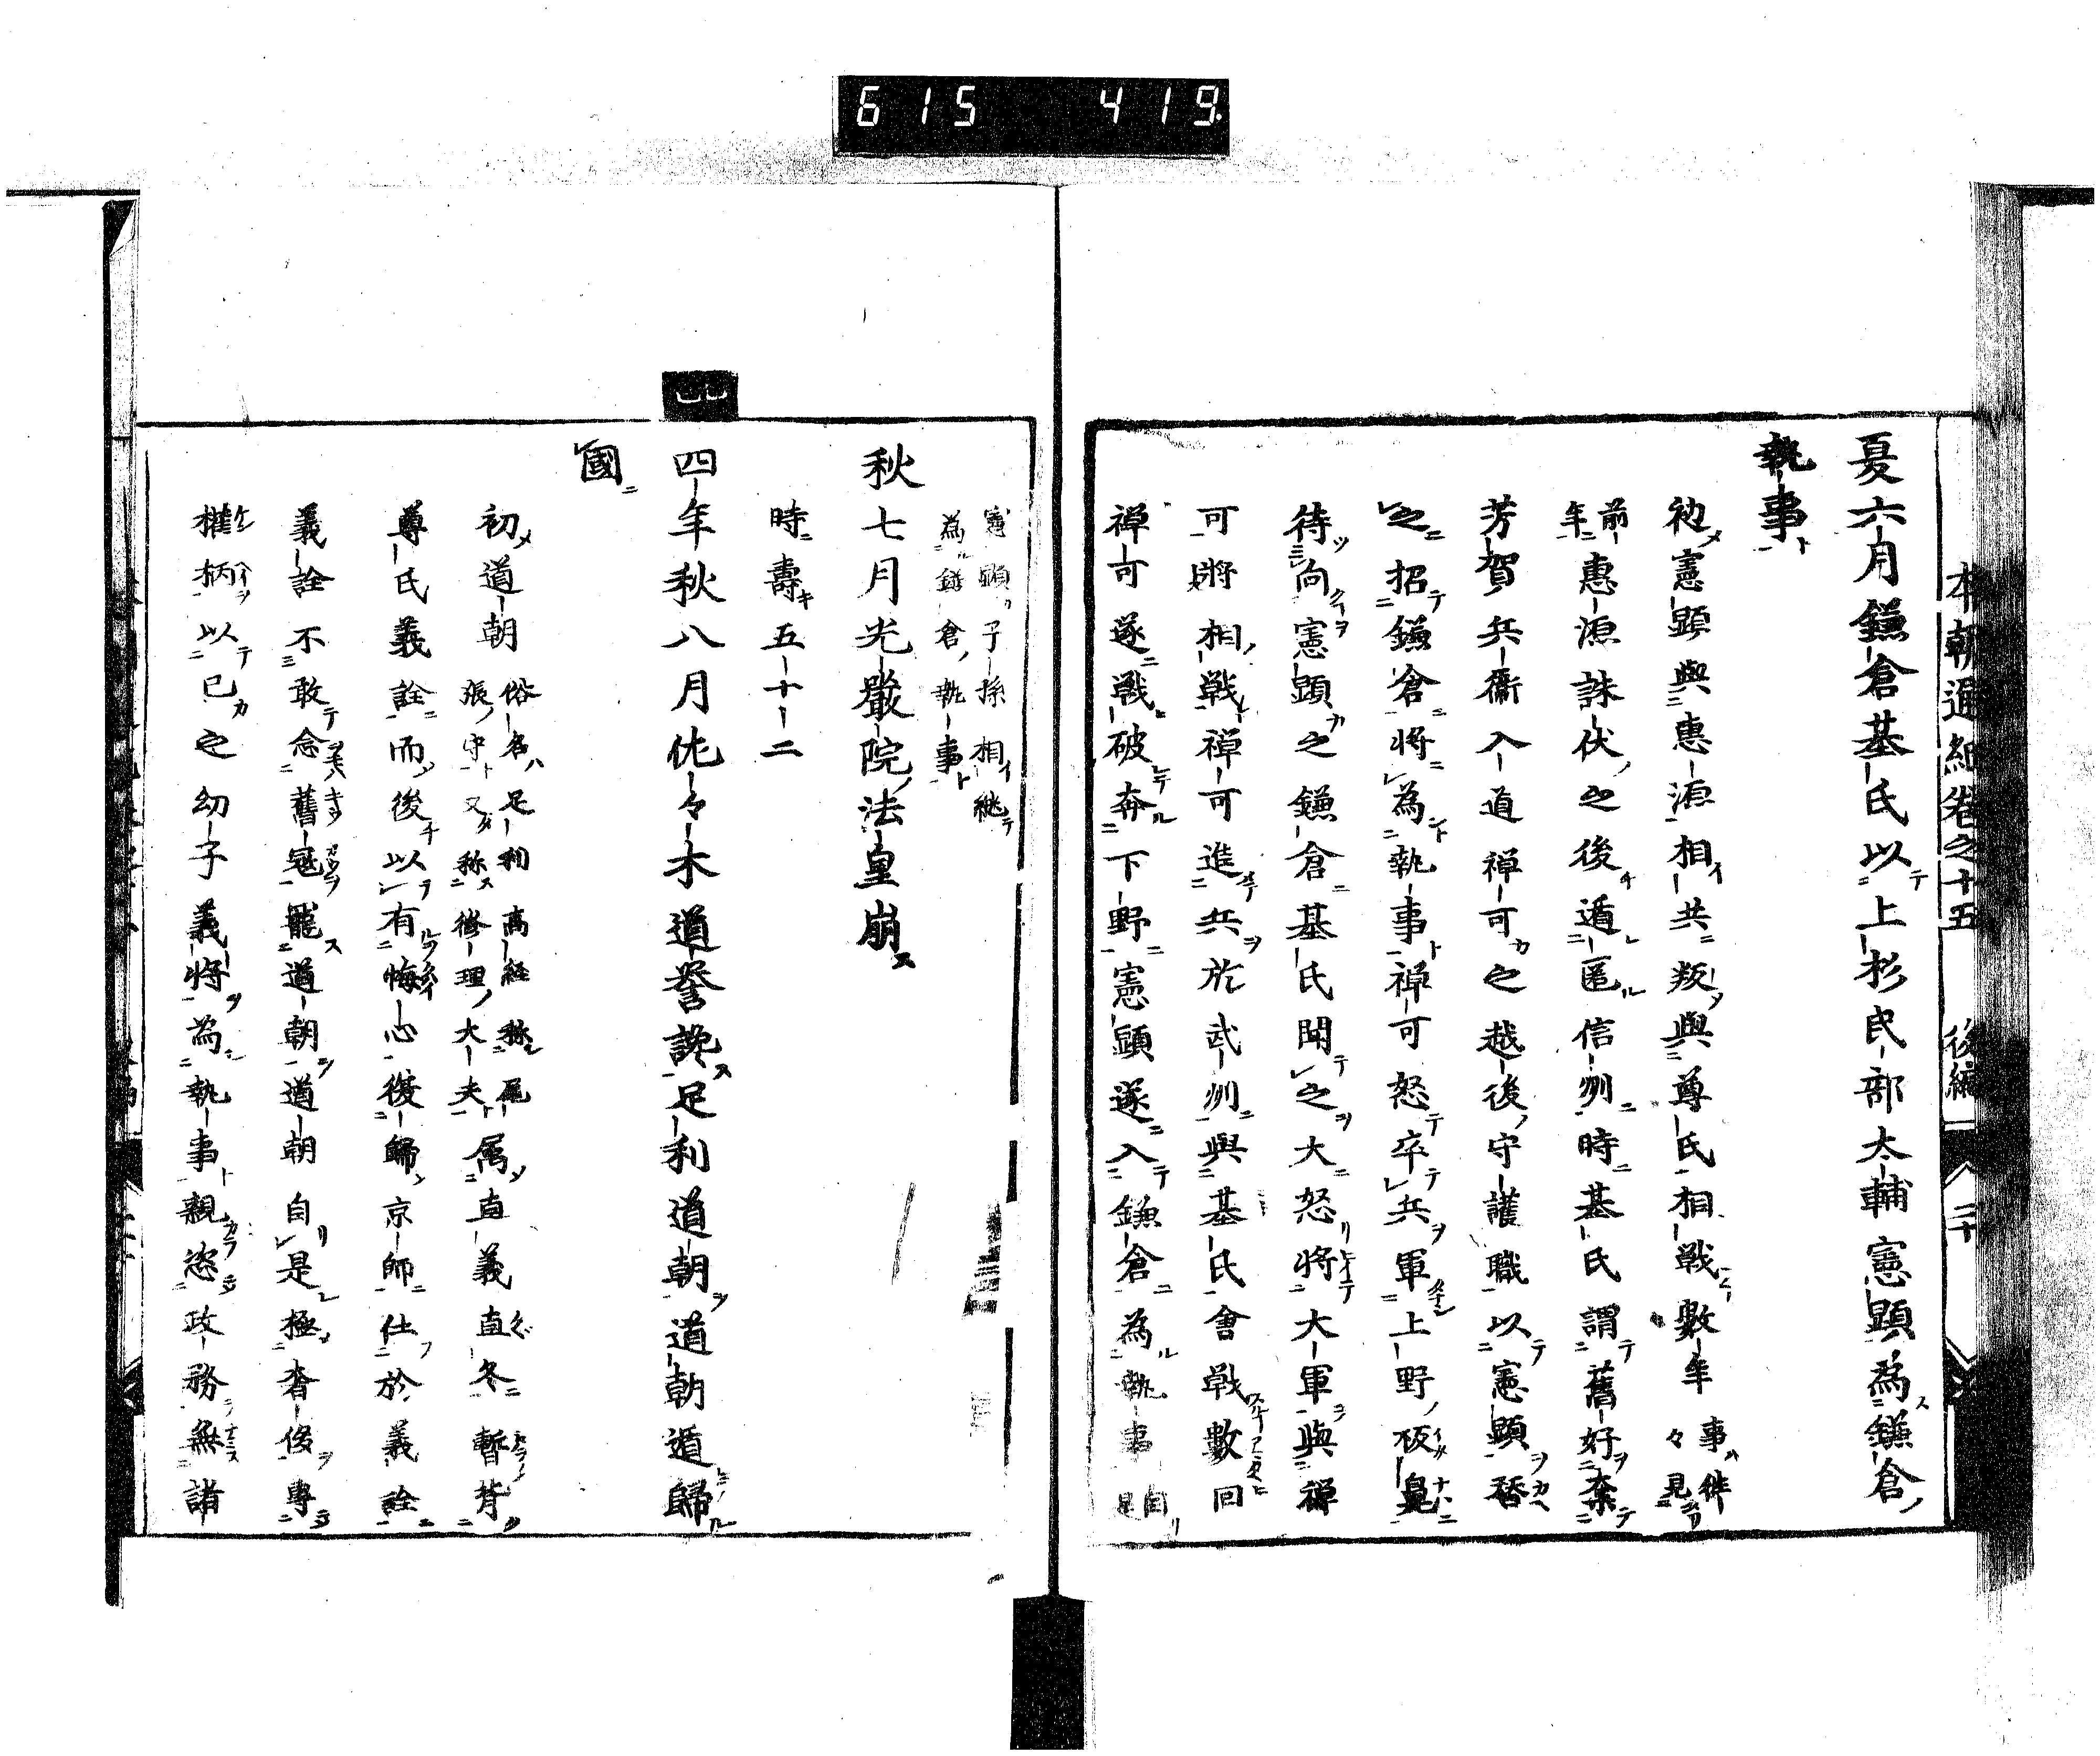 615 419
本朝通紀卷之十五 後編 二十
夏六月鎌倉基氏以上杉民部太輔憲顕為鎌倉
執事
初憲顕與惠源相共叛與尊氏相戦數年 事件々見
前年惠源誅伏之後遁匿信州時基氏謂舊好棄
芳賀兵衞入道禅可之越後守護職以憲顕替
之招鎌倉将為執事禅可怒卒兵軍上野板鼻
待向憲顕之鎌倉基氏聞之大怒将大軍與禅
可将相戦禅可進兵於武州與基氏會戦數回
禅可遂戦破奔下野憲顕遂入鎌倉為執事 自是
憲顕子孫相継
為鎌倉執事
秋七月光嚴院法皇崩
時壽五十二
四
四年秋八月佐々木道誉讒足利道朝道朝遁歸
國
初道朝 俗名足利高経称尾張守又称修理大夫 属直義直冬暫背
尊氏義詮而後以有悔心復歸京師仕於義詮
義詮不敢念舊冦寵道朝道朝自是極奢侈專
權柄以已之幼子義将為執事親恣政務無諸